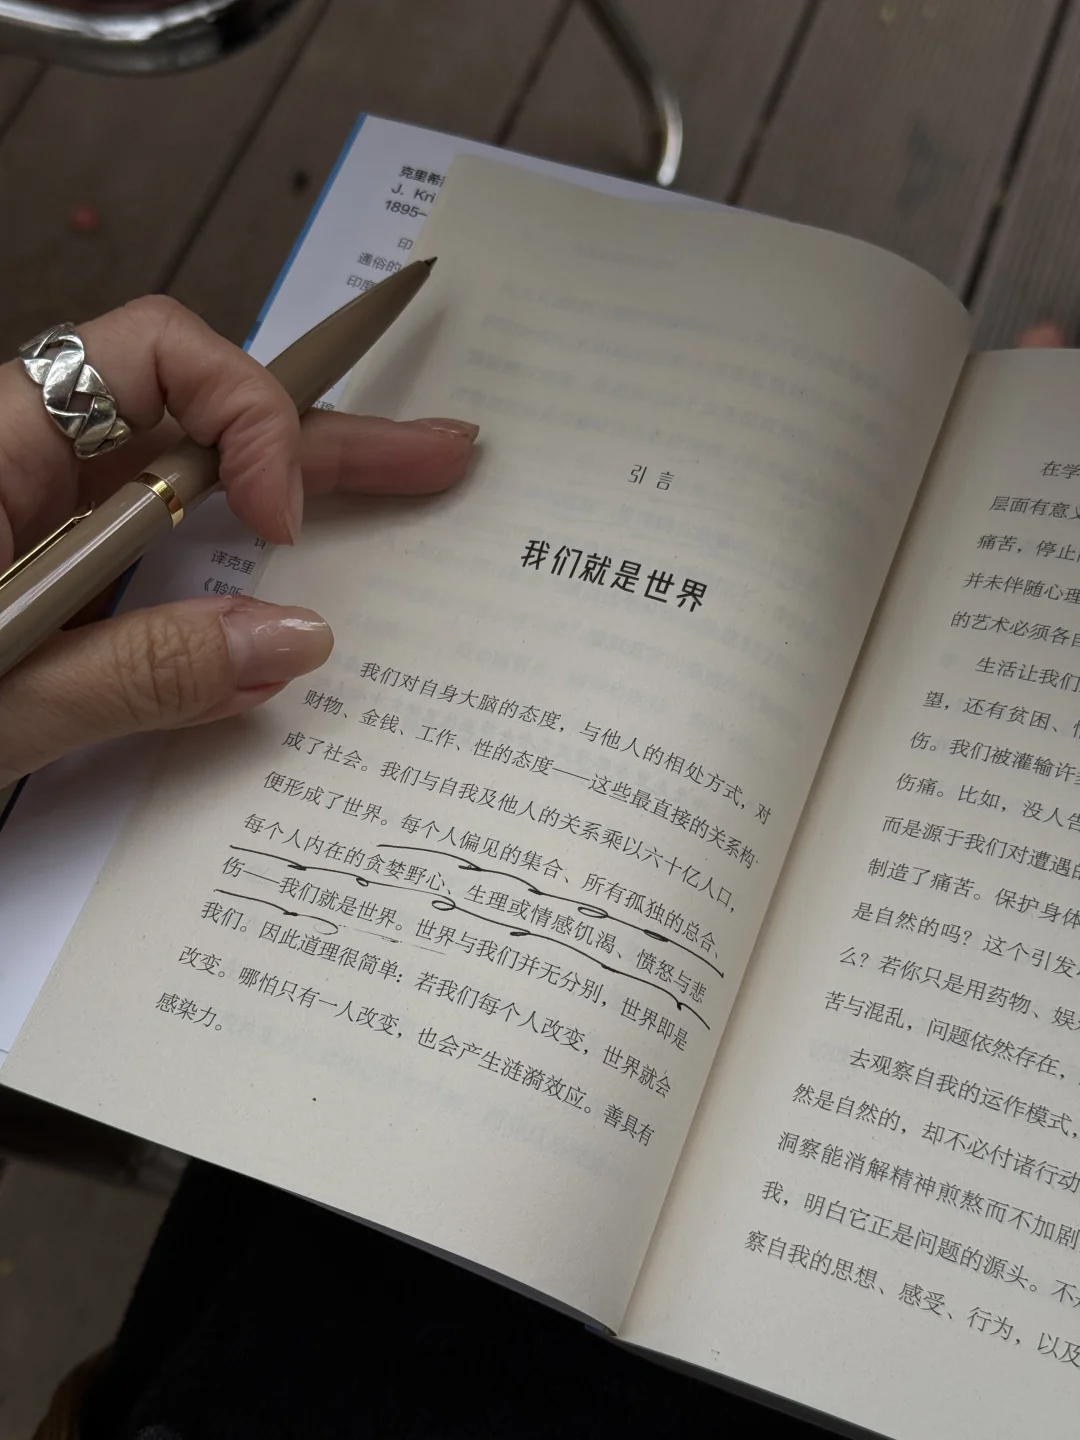 克里希
J. Kri
1895–
印
通俗的
印度
译克里
《聆听
引言
我们就是世界
我们对自身大脑的态度，与他人的相处方式，对
财物、金钱、工作、性的态度——这些最直接的关系构
成了社会。我们与自我及他人的关系乘以六十亿人口，
便形成了世界。每个人偏见的集合、所有孤独的总合、
每个人内在的贪婪野心、生理或情感饥渴、愤怒与悲
伤——我们就是世界。世界与我们并无分别，世界即是
我们。因此道理很简单：若我们每个人改变，世界就会
改变。哪怕只有一人改变，也会产生涟漪效应。善具有
感染力。
在学
层面有意义
痛苦，停止
并未伴随心理
的艺术必须各自
生活让我们
望，还有贫困、
伤。我们被灌输许多
伤痛。比如，没人告
而是源于我们对遭遇的
制造了痛苦。保护身体
是自然的吗？这个引发
么？若你只是用药物、娱
苦与混乱，问题依然存在，
去观察自我的运作模式，
然是自然的，却不必付诸行动
洞察能消解精神煎熬而不加剧
我，明白它正是问题的源头。不
察自我的思想、感受、行为，以及